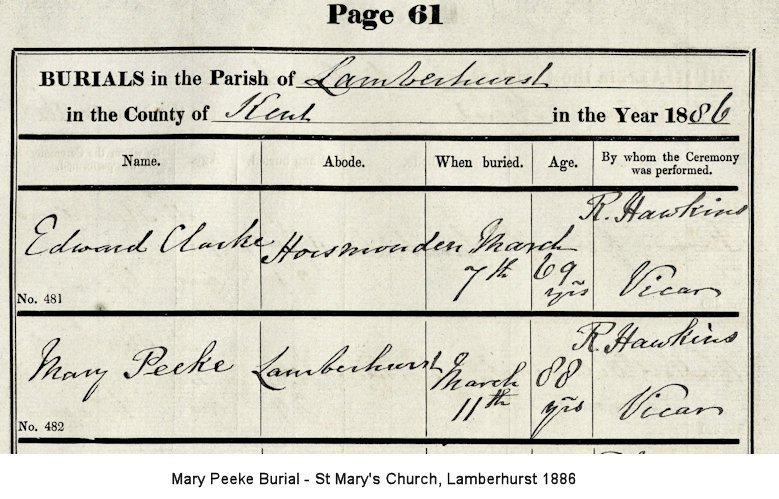 Page 61
BURIALS in the Parish of Lamberhurst
in the County of Kent in the Year 1886
Name. Abode. When buried. Age. By whom the Ceremony was performed.
R. Hawkins
Edward Clarke Horsmonden March
7th 69 yrs Vicar
No. 481
R. Hawkins
Mary Peeke Lamberhurst March 88
11th yrs Vicar
No. 482
Mary Peeke Burial - St Mary's Church, Lamberhurst 1886